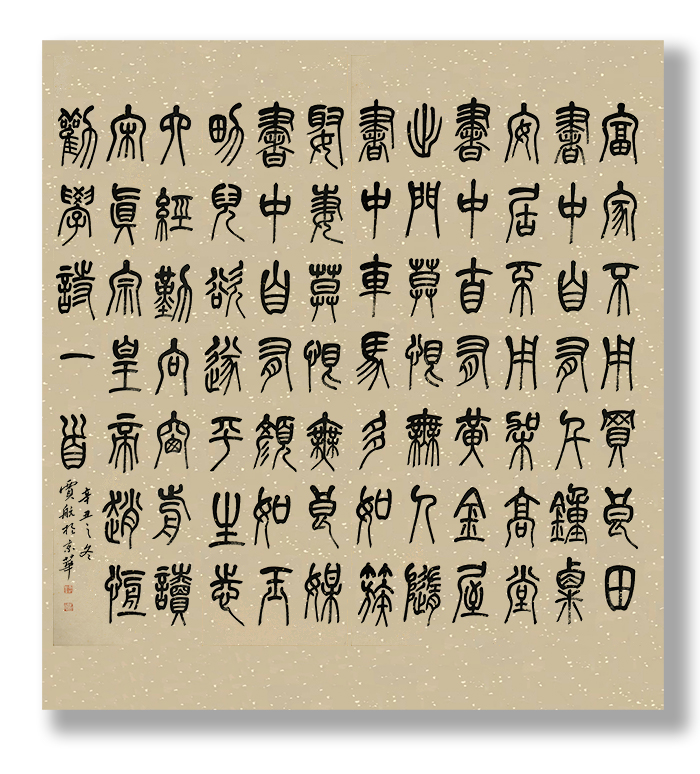 富家不用買良田
書中自有千鍾粟
安居不用架高堂
書中自有黃金屋
出門莫恨無人隨
書中車馬多如簇
娶妻莫恨無良媒
書中自有顏如玉
男兒欲遂平生志
六經勤向窗前讀
宋真宗皇帝趙恒
勸學詩一首
辛丑之冬
於京華